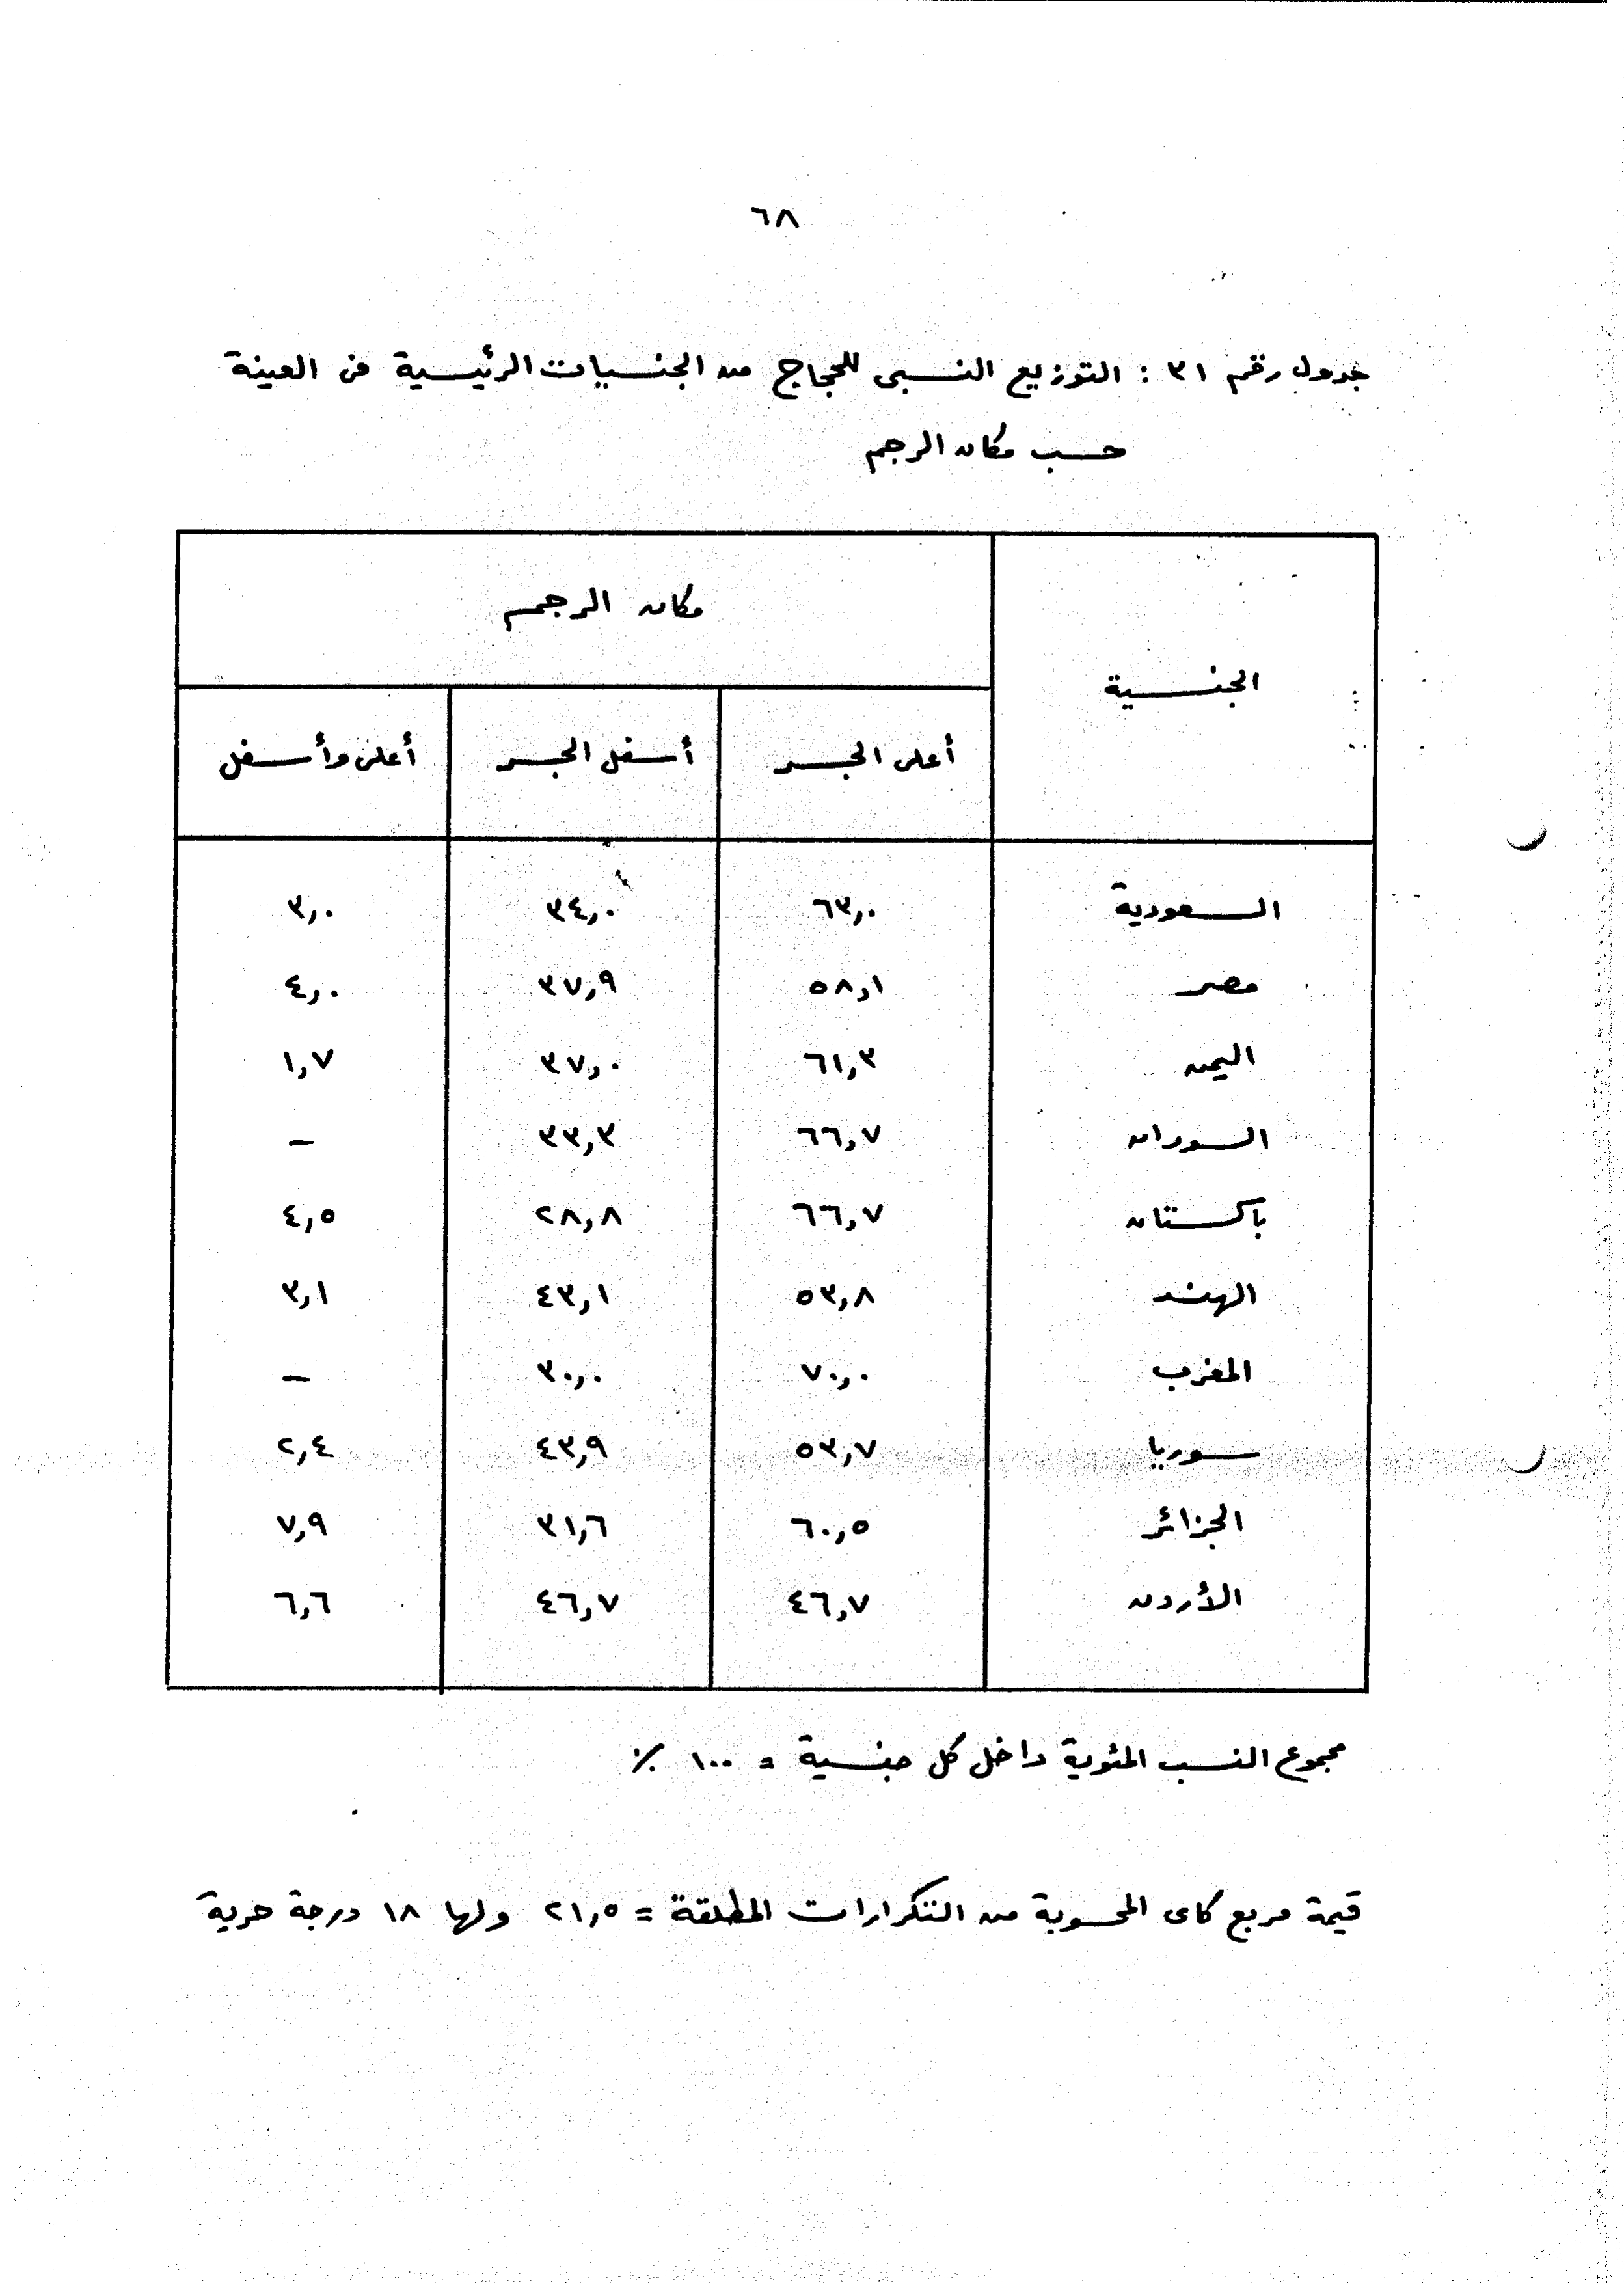 ٦٨
جدول رقم ٣١ : التوزيع النسبى للحجاج من الجنسيات الرئيسية فى العينة
حسب مكان الرجم
الجنسية
مكان الرجم
أعلى الجسر أسفل الجسر أعلى وأسفل
السعودية ٦٣,٠ ٣٤,٠ ٣,٠
مصر ٥٨,١ ٣٧,٩ ٤,٠
اليمن ٦١,٣ ٣٧,٠ ١,٧
السودان ٦٦,٧ ٣٣,٣ –
باكستان ٦٦,٧ ٢٨,٨ ٤,٥
الهند ٥٣,٨ ٤٣,١ ٣,١
المغرب ٧٠,٠ ٣٠,٠ –
سوريا ٥٣,٧ ٤٣,٩ ٢,٤
الجزائر ٦٠,٥ ٣١,٦ ٧,٩
الأردن ٤٦,٧ ٤٦,٧ ٦,٦
مجموع النسب المئوية داخل كل جنسية = ١٠٠ ٪
قيمة مربع كاى المحسوبة من التكرارات المطلقة = ٢١,٥ ولها ١٨ درجة حرية